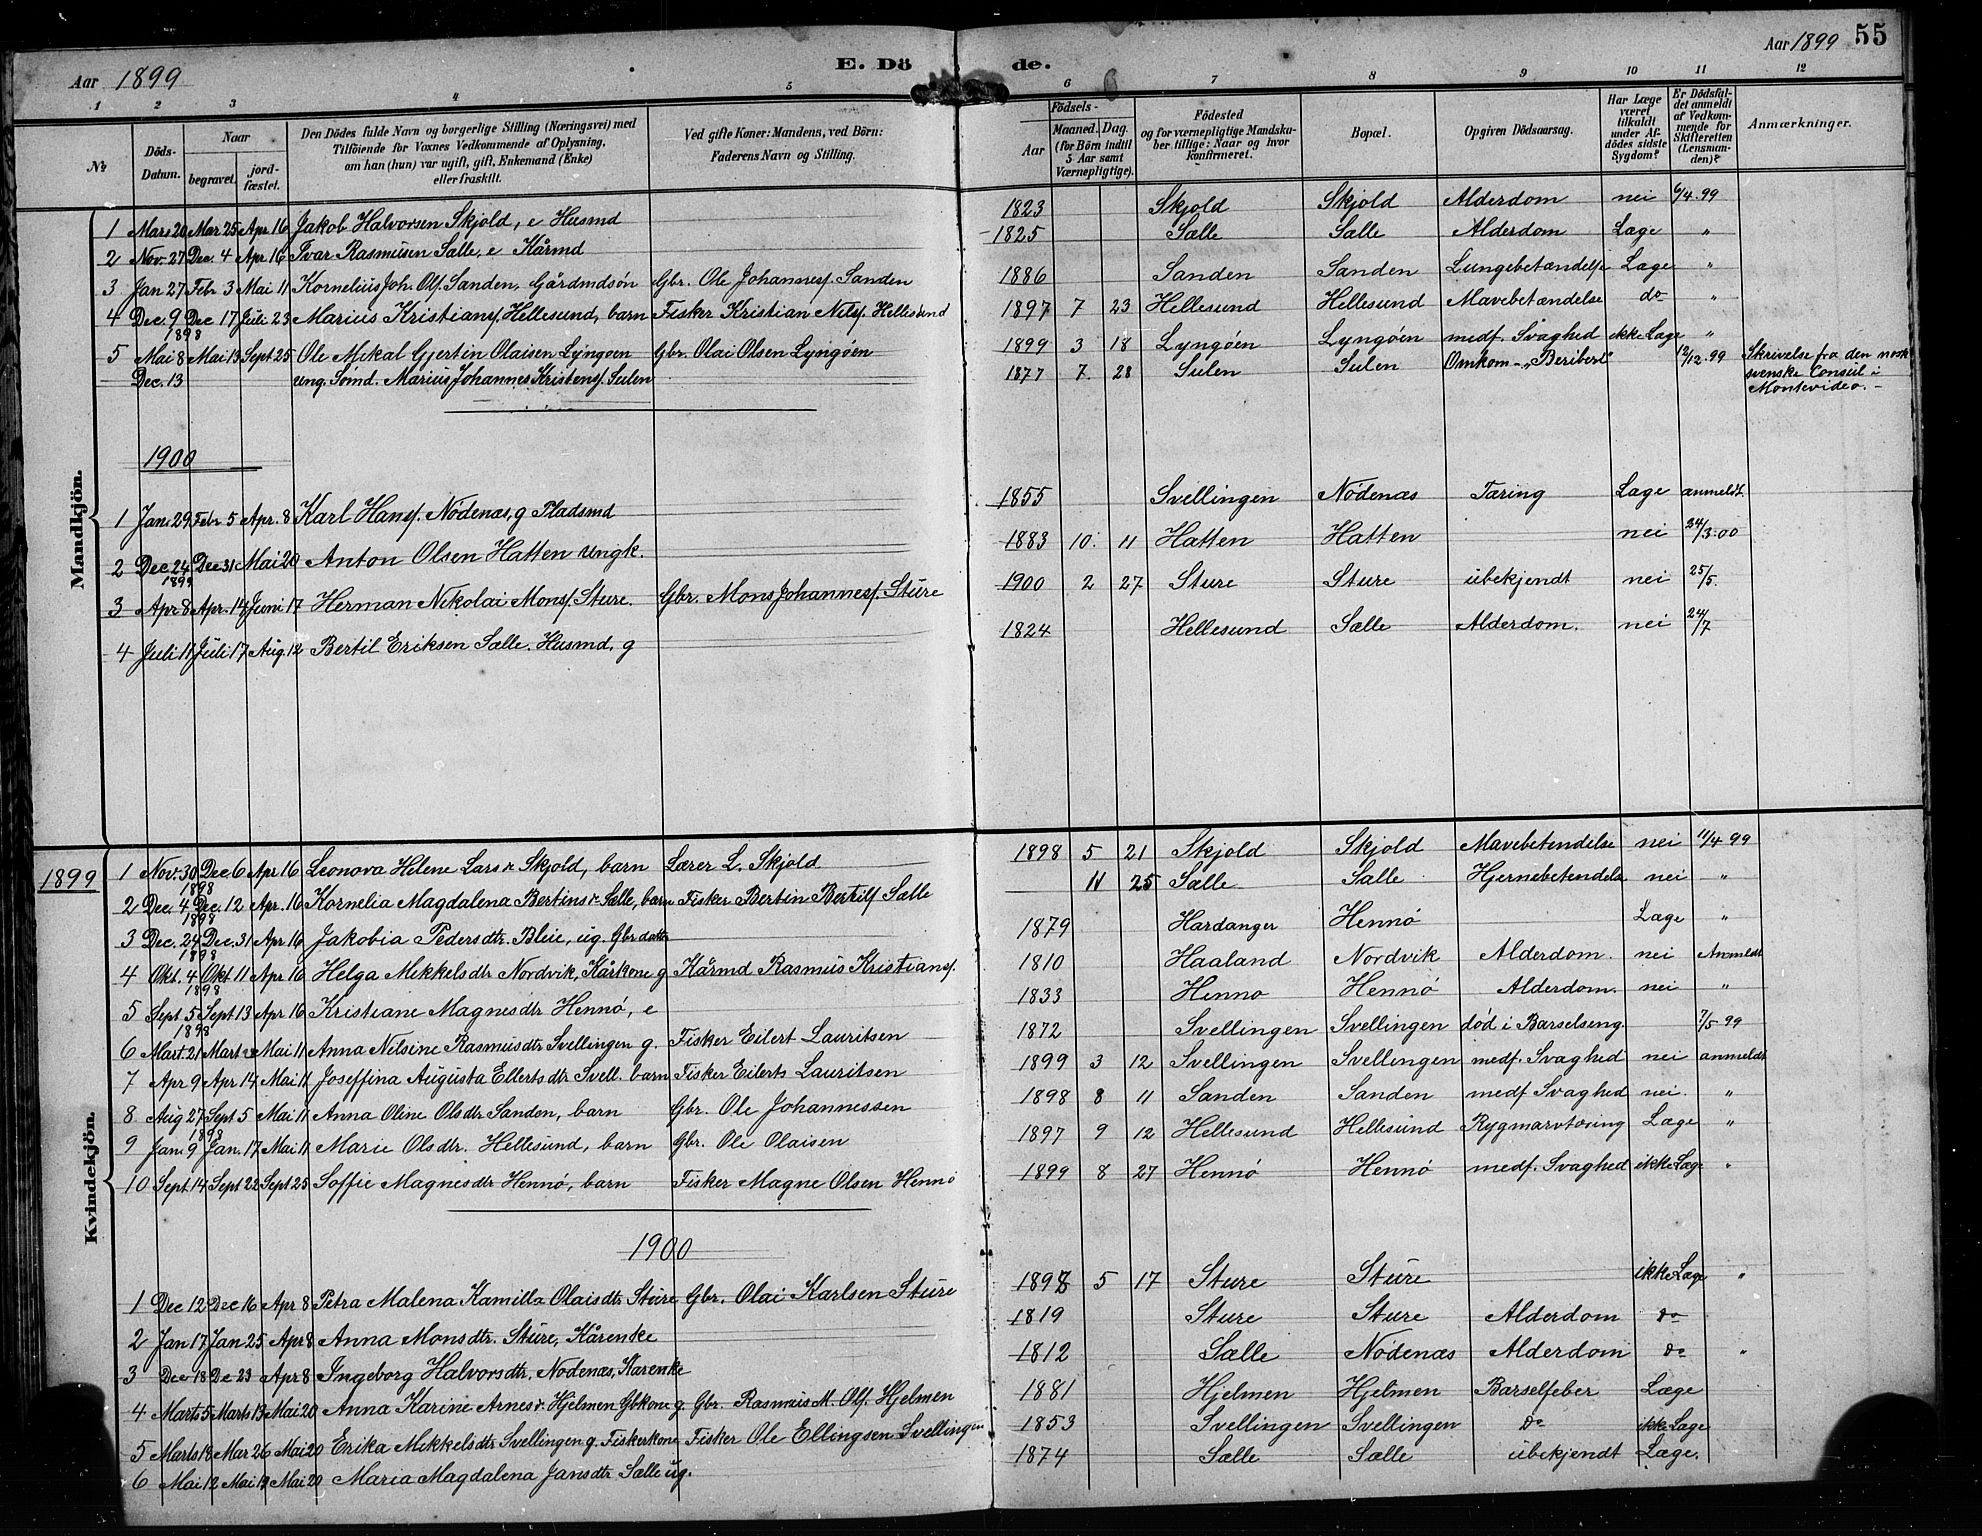 Aar 1899 E. Dö de. Aar 1899 55
1 2 3 4 5 6 7 8 9 10 11 12
No
Döds-Datum.
Naar
begravet.
jord-fæstet.
Den Dödes fulde Navn og borgerlige Stilling (Næringsvei) med
Tilföiende for Voxnes Vedkommende af Oplysning,
om han (hun) var ugift, gift, Enkemand (Enke)
eller fraskilt.
Ved gifte Koner: Mandens, ved Börn:
Faderens Navn og Stilling.
Födsels-
Aar
Maaned. Dag.
(for Börn indtil
5 Aar samt
Værnepligtige).
Födested
og for værnepligtige Mandska-
ber tillige: Naar og hvor
konfirmeret.
Bopæl.
Opgiven Dödsaarsag.
Har Læge
været
tilkaldt
under Af-
dödes sidste
Sygdom?
Er Dödsfal-
det anmeldt
af Vedkom-
mende for
Skifteretten
(Lensman-
den)?
Anmærkninger.
Mandkjön.
1 Mars 20 Mar 25 Apr 16 Jakob Halvorsen Skjold, e Husmd 1823 Skjold Skjold Alderdom nei 6/4.99
2 Nov. 27 Dec. 4 Apr 16 Ivar Rasmusen Sælle, e Kårmd 1825 Sælle Sælle Alderdom Læge "
3 Jan 27 Febr 3 Mai 11 Kornelius Joh. Ols. Sanden, Gårdmdsön Gbr. Ole Johanness. Sanden 1886 Sanden Sanden Lungebetændelse Læge "
4 Dec. 9 Dec 17 Juli 23 Marius Kristians. Hellesund, barn Fisker Kristian Nils. Hellesund 1897 7 23 Hellesund Hellesund Mavebetændelse do "
1898
5 Mai 8 Mai 13 Sept 25 Ole Mikal Gjertin Olaisen Lyngöen Gbr. Olai Olsen Lyngöen 1899 3 18 Lyngöen Lyngöen medf. Svaghed ikke Læge "
Dec. 13 ung. Sømd. Marius Johannes Kristens. Sulen 1877 7 28 Sulen Sulen Omkom - "Beriberi" 12/12.99 Skrivelse fra den norsk
svenske Consul i
Montevideo. -
1900
1 Jan 29 Febr 5 Apr. 8 Karl Hans. Nödenæs, g Pladsmd 1855 Svellingen Nödenæs Tæring Læge anmeldt
2 Dec. 24 Dec 31 Mai 20 Anton Olsen Hatten ungk. 1883 10. 11 Hatten Hatten nei 24/3.00
1899
3 Apr 8 Apr. 14 Juni 17 Herman Nikolai Mons. Sture. Gbr. Mons Johannes. Sture 1900 2 27 Sture Sture ubekjendt nei 25/5.
4 Juli 11 Juli 17 Aug. 12 Bertil Eriksen Sælle. Husmd, g 1824 Hellesund Sælle Alderdom. nei 24/7
Kvindekjön.
1899
1 Nov. 30 Dec 6 Apr 16 Leonova Helene Lars dr Skjold, barn Lærer L. Skjold 1898 5 21 Skjold Skjold Mavebetendelse nei 11/4 99
1898
2 Dec. 4 Dec. 12 Apr. 16 Kornelia Magdalena Bertins dr Sælle, barn Fisker Bertin Bertils Sælle 11 25 Sælle Sælle Hjernebetendelse nei "
1898
3 Dec. 24 Dec. 31 Apr 16 Jakobia Pedersdtr. Bleie, ug. Gbrdatter 1879 Hardanger Hennö Læge "
1898
4 Okt. 4 Okt 11 Apr 16 Helga Mikkelsdtr Nordvik, Kårkone g Kårmd Rasmus Kristians. 1810 Haaland Nordvik Alderdom. nei Anmeldt
1898
5 Sept 5 Sept 13 Apr 16 Kristiane Magnesdtr Hennö, e 1833 Henno Hennö Alderdom. nei "
1898
6 Mart. 21 Mart Mai 11 Anna Nilsine Rasmusdtr Svellingen g. Fisker Eilert Lauritsen 1872 Svellingen Svellingen död i Barselseng. 7/5 99
7 Apr 9 Apr 14 Mai 11 Joseffina Augusta Ellertsdtr Svell. barn Fisker Eilerts Lauritsen 1899 3 12 Svellingen Svellingen medf. Svaghed nei anmeldt
8 Aug 27 Sept 5 Mai 11 Anna Oline Olsdtr Sanden, barn Gbr. Ole Johannessen 1898 8 11 Sanden Sanden medf Svaghed nei. "
1898
9 Jan. 9 Jan. 17 Mai 11 Marie Olsdtr. Hellesund, barn Gbr. Ole Olaisen 1897 9 12 Hellesund Hellesund Rygmarvtæring Læge "
10 Sept. 14 Sept 22 Sept 25 Soffie Magnesdtr Hennö, barn Fisker Magne Olsen Hennö 1899 8 27 Hennö Hennö medf. Svaghed ikke Læge "
1900
1 Dec 12 Dec 16 Apr 8 Petra Malena Kamilla Olaisdtr Sture Gbr. Olai Karlsen Sture 5 17 Sture Sture ikke Læge "
2 Jan 17 Jan 25 Apr 8 Anna Monsdtr. Sture, Kårenke 1819 Sture Sture Alderdom do
3 Dec 18 De 23 Apr 8 Ingeborg Halvorsdtr. Nödenæs, Karenke 1812 Sælle Nödenæs Alderdom do "
4 Marts 5 Marts 13 Mai 20 Anna Karine Arnes dr. Hjelmen Gbkone g. Gbr. Rasmus M. Ols. Hjelmen 1881 Hjelmen Hjelmen Barselfeber Læge
5 Marts 18 Mar 26 Mai 20 Erika Mikkelsdtr Svellingen g. Fiskerkone Fisker Ole Ellingsen Svellingen 1853 Svellingen Svellingen do ikke Læge
6 Mai 12 Mai 19 Mai 20 Maria Magdalena Jansdtr Sælle ug. 1874 Sælle Sælle ubekjendt Læge.